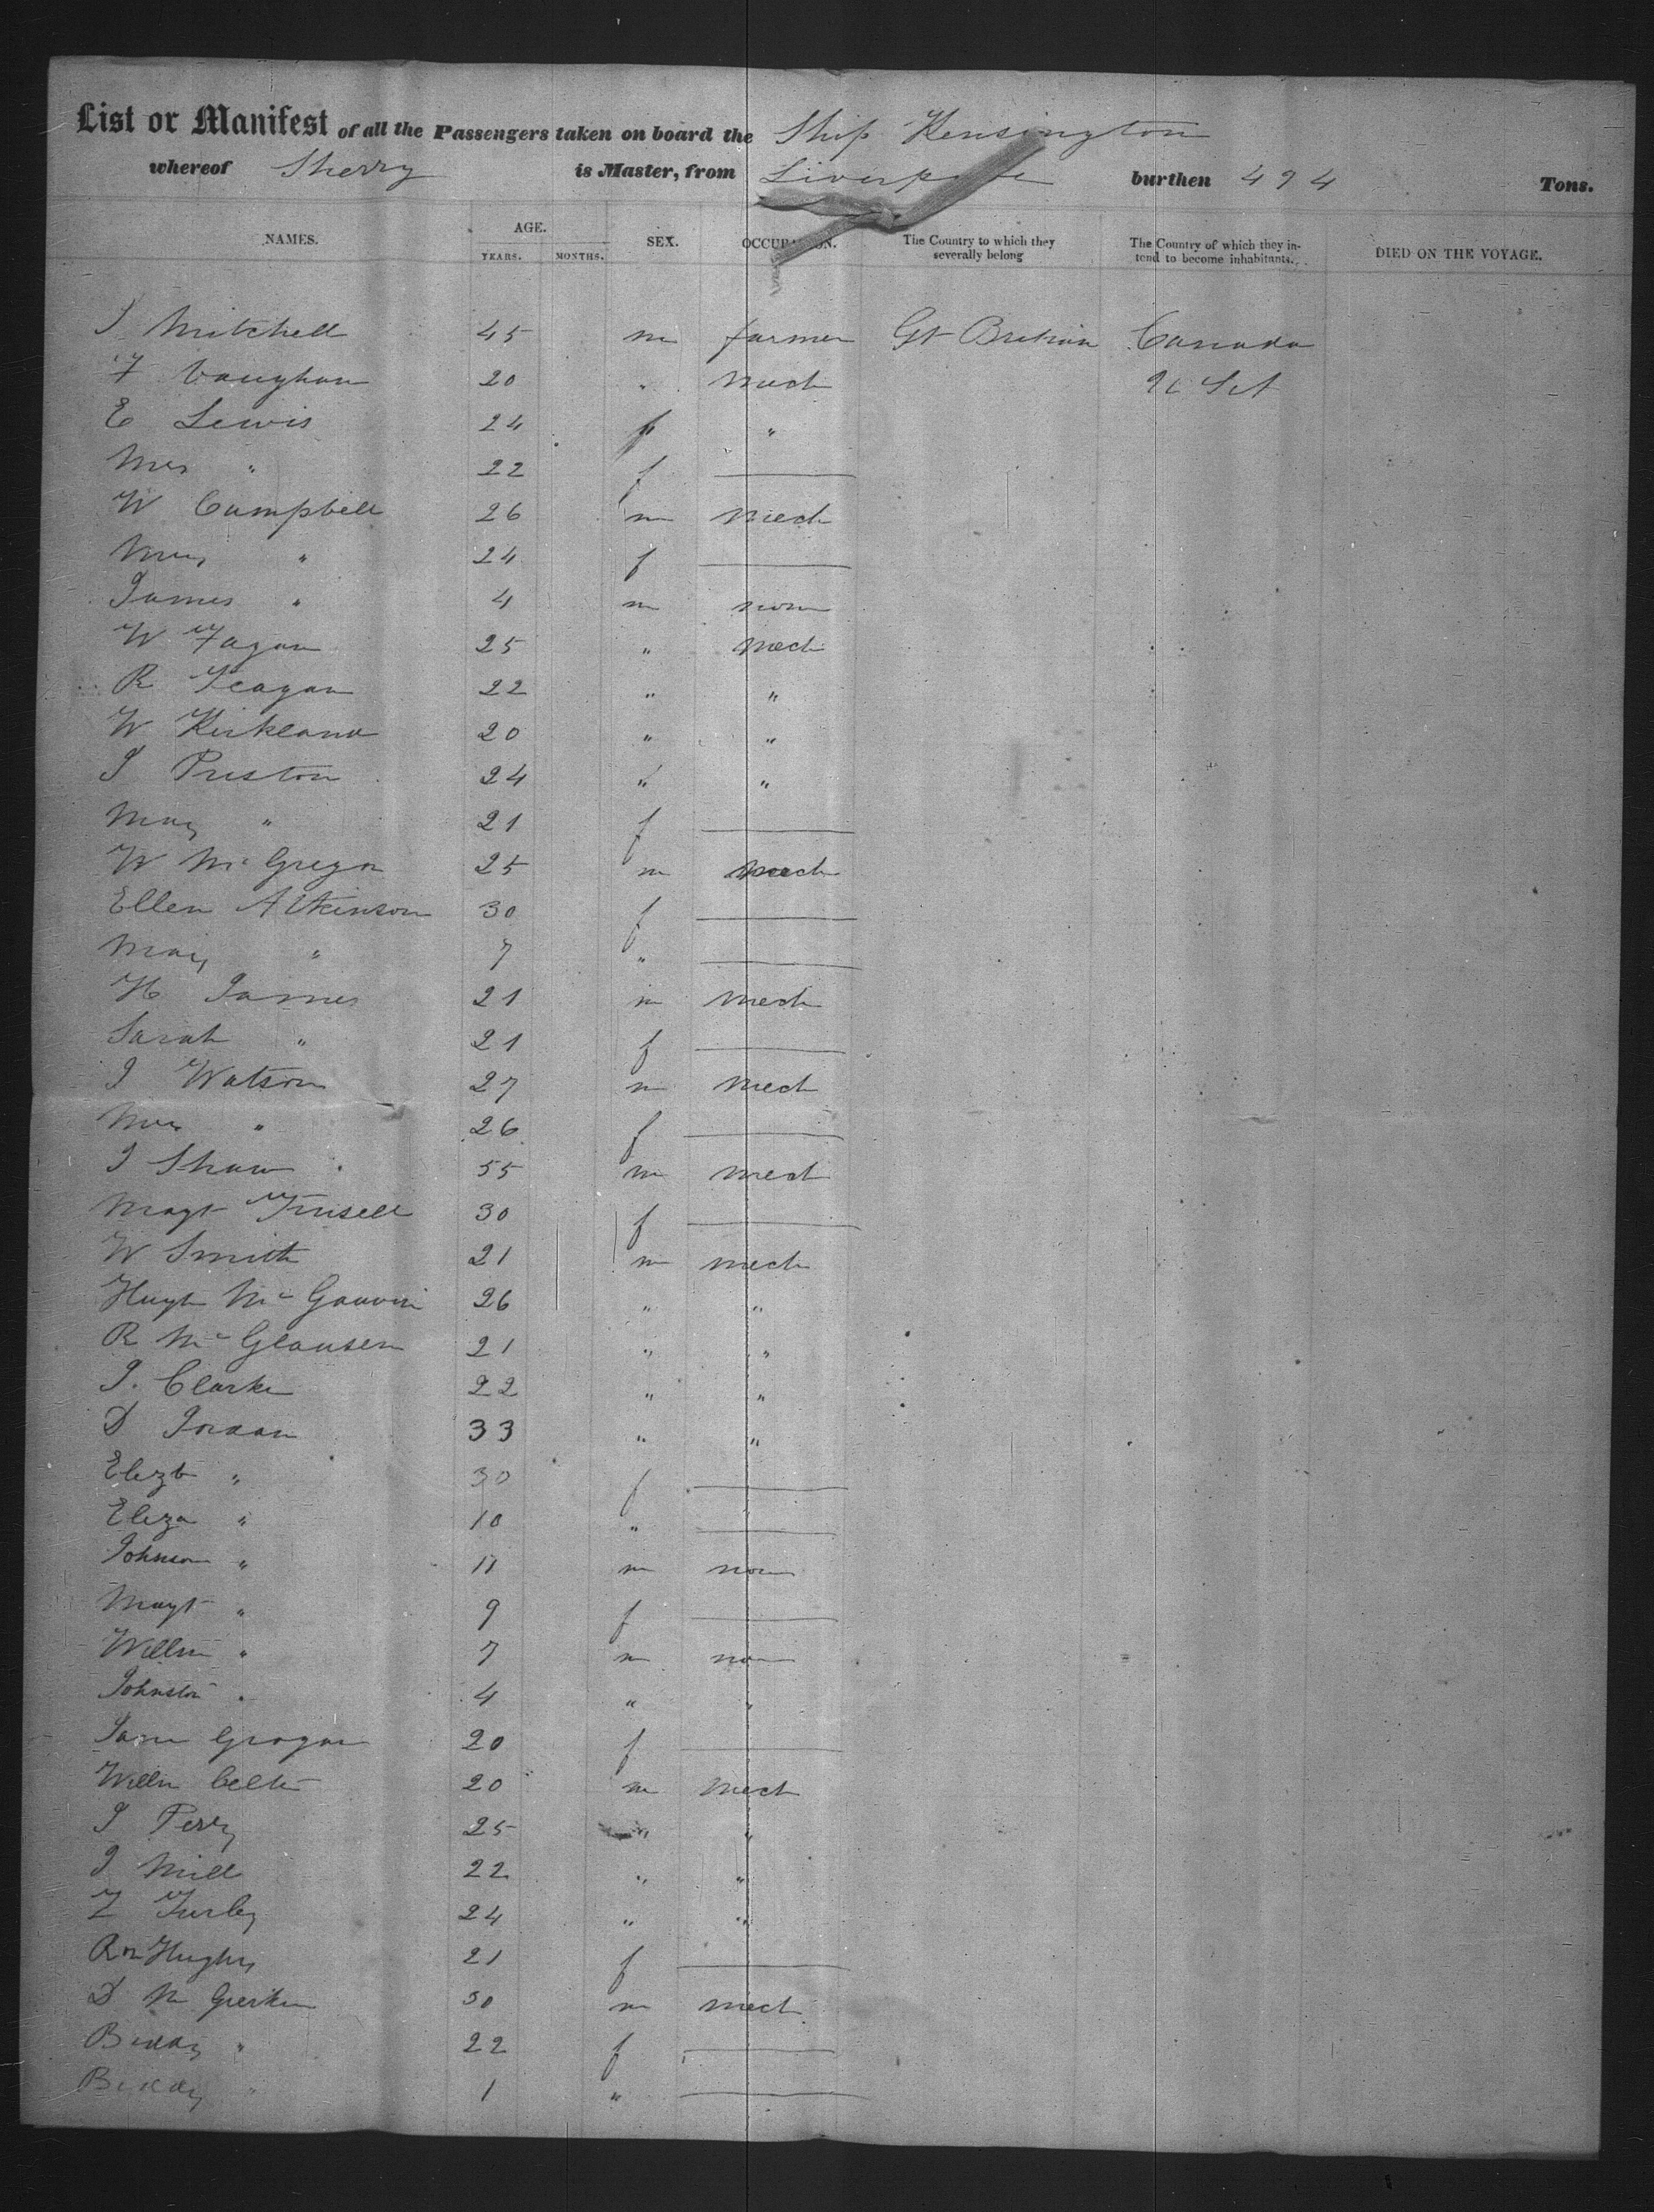 List or Manifest of all the Passengers taken on board the Ship Kensington
whereof Sherry is Master, from Liverpool burthen 494 Tons.
NAMES. AGE. YEARS. MONTHS. SEX. OCCUPATION. The Country to which they severally belong The Country of which they intend to become inhabitants. DIED ON THE VOYAGE.
J Mitchell 45 m farmer Gt Britain Canada
F Vaughan 20 " mech U Sts
E Lewis 24 "
Mrs " 22 f
W Campbell 26 m mech
Mary " 24 f
James " 4 m none
W Fagan 25 " mech
R Feagan 22 " "
W Kirkland 20 " "
J Preston 24 " "
Mary " 21 f
W McGregor 25 m mech
Ellen Atkinson 30 f
Mary " 7 "
H James 21 m mech
Sarah " 21 f
J Watson 27 m mech
Mrs " 26 f
J Shaw 55 m mech
Magt Tinsell 30 f
W Smith 21 m mech
Hugh Mc 26 " "
R Mc 21 " "
J. Clarke 22 " "
D Jordan 33 " "
Elizt " 30 f
Eliza " 10 "
Johnson " 11 m none
Magt " 9 f
Willm " 7 m none
Johnston " 4 " "
Jane Grogan 20 f
Willm 20 m mech
J Perry 25 " "
J Mill 22 " "
Z Turley 24 " "
Hughes 21 f
D Mc 30 m mech
Biddy " 22 f
Biddy " 1 "